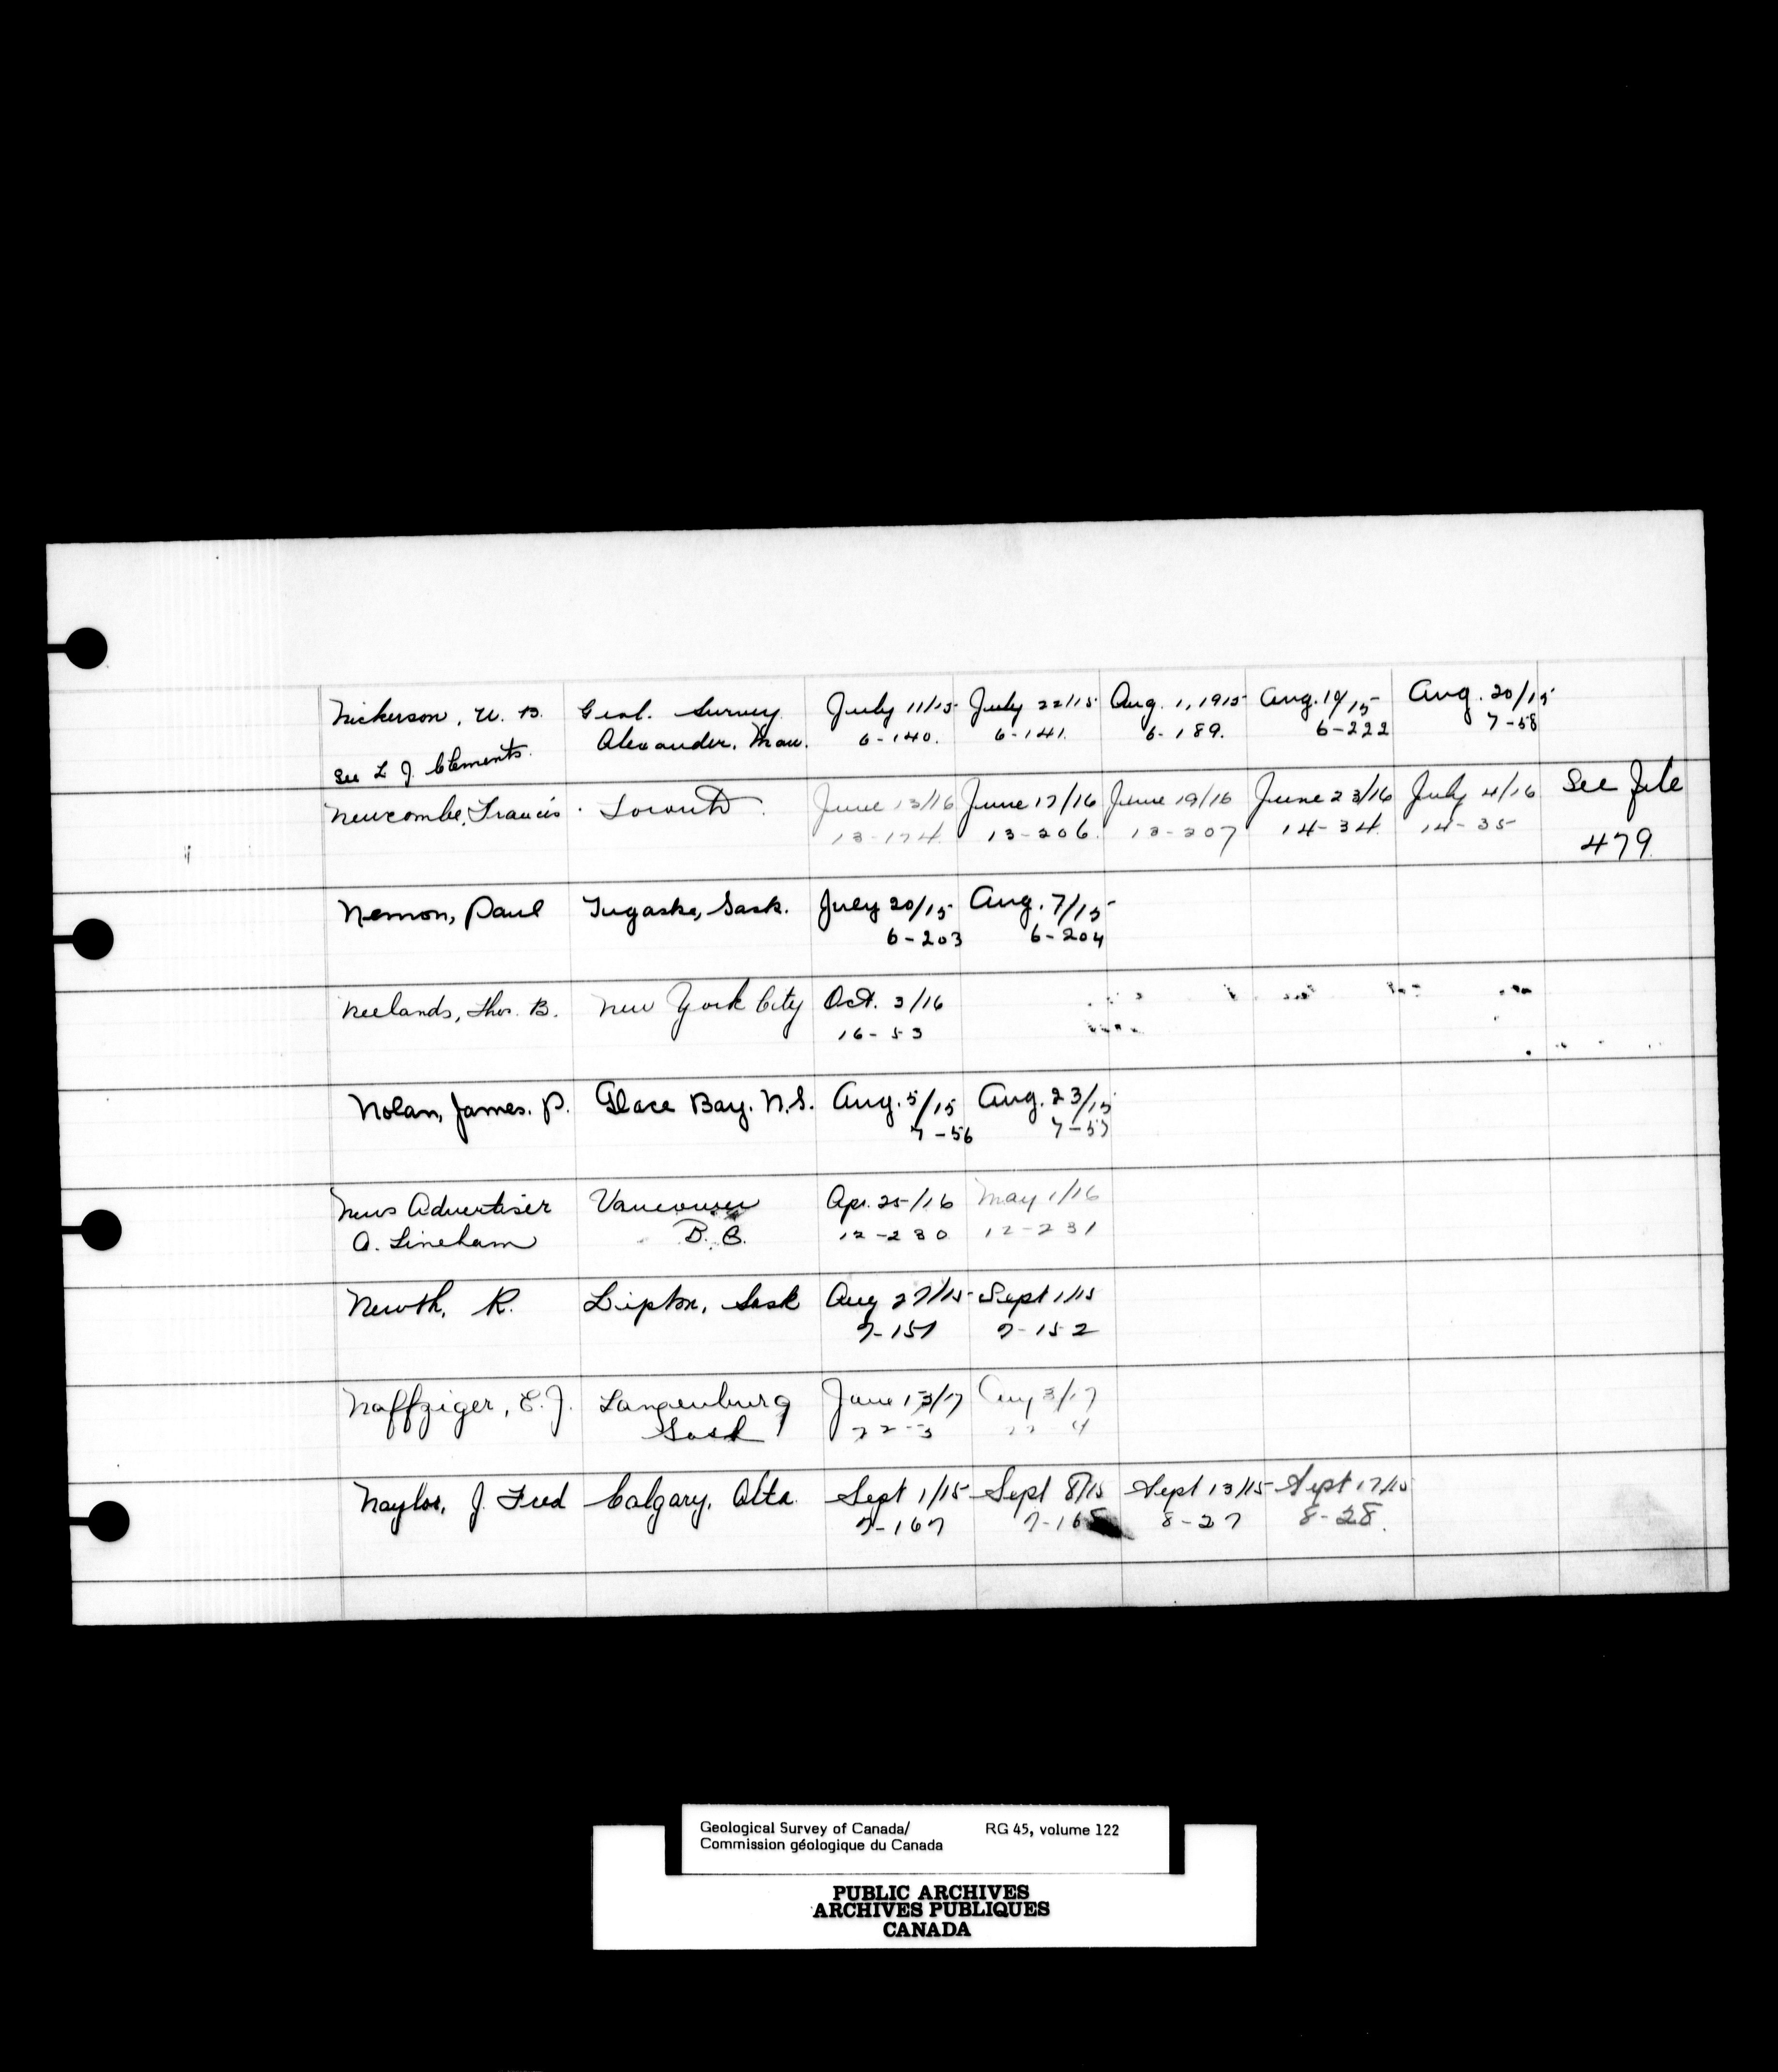 Nickerson, W. B. Geol. Survey July 11/15 July 22/15 Aug. 1, 1915 Aug. 19/15 Aug. 20/15
Alexander, Man. 6-140. 6-141. 6-189. 6-222 7-58
See L. J. Clements.
Newcombe, Francis. Toronto. June 13/16 June 17/16 June 19/16 June 23/16 July 4/16 See File
13-174. 13-206. 13-207 14-34 14-35 479
Nemon, Paul Tugaske, Sask. July 20/15 Aug. 7/15
6-203 6-204
Neelands, Thos. B. New York City Oct. 3/16
16-53
Nolan, James. P. Glace Bay. N.S. Aug. 5/15 Aug. 23/15
7-56 7-57
News Advertiser Vancouver Apr. 25/16 May 1/16
A. Lineham B. C. 12-230 12-231
Newth, R. Lipton, Sask Aug 27/15 Sept 1/15
7-151 7-152
Naffziger, E. J. Langenburg June 13/17 Aug 3/17
Sask 22-3 22-4
Naylor, J. Fred Calgary, Alta. Sept 1/15 Sept 8/15 Sept 13/15 Sept 17/15
7-167 7-168 8-27 8-28.
Geological Survey of Canada/ RG 45, volume 122
Commission géologique du Canada
PUBLIC ARCHIVES
ARCHIVES PUBLIQUES
CANADA